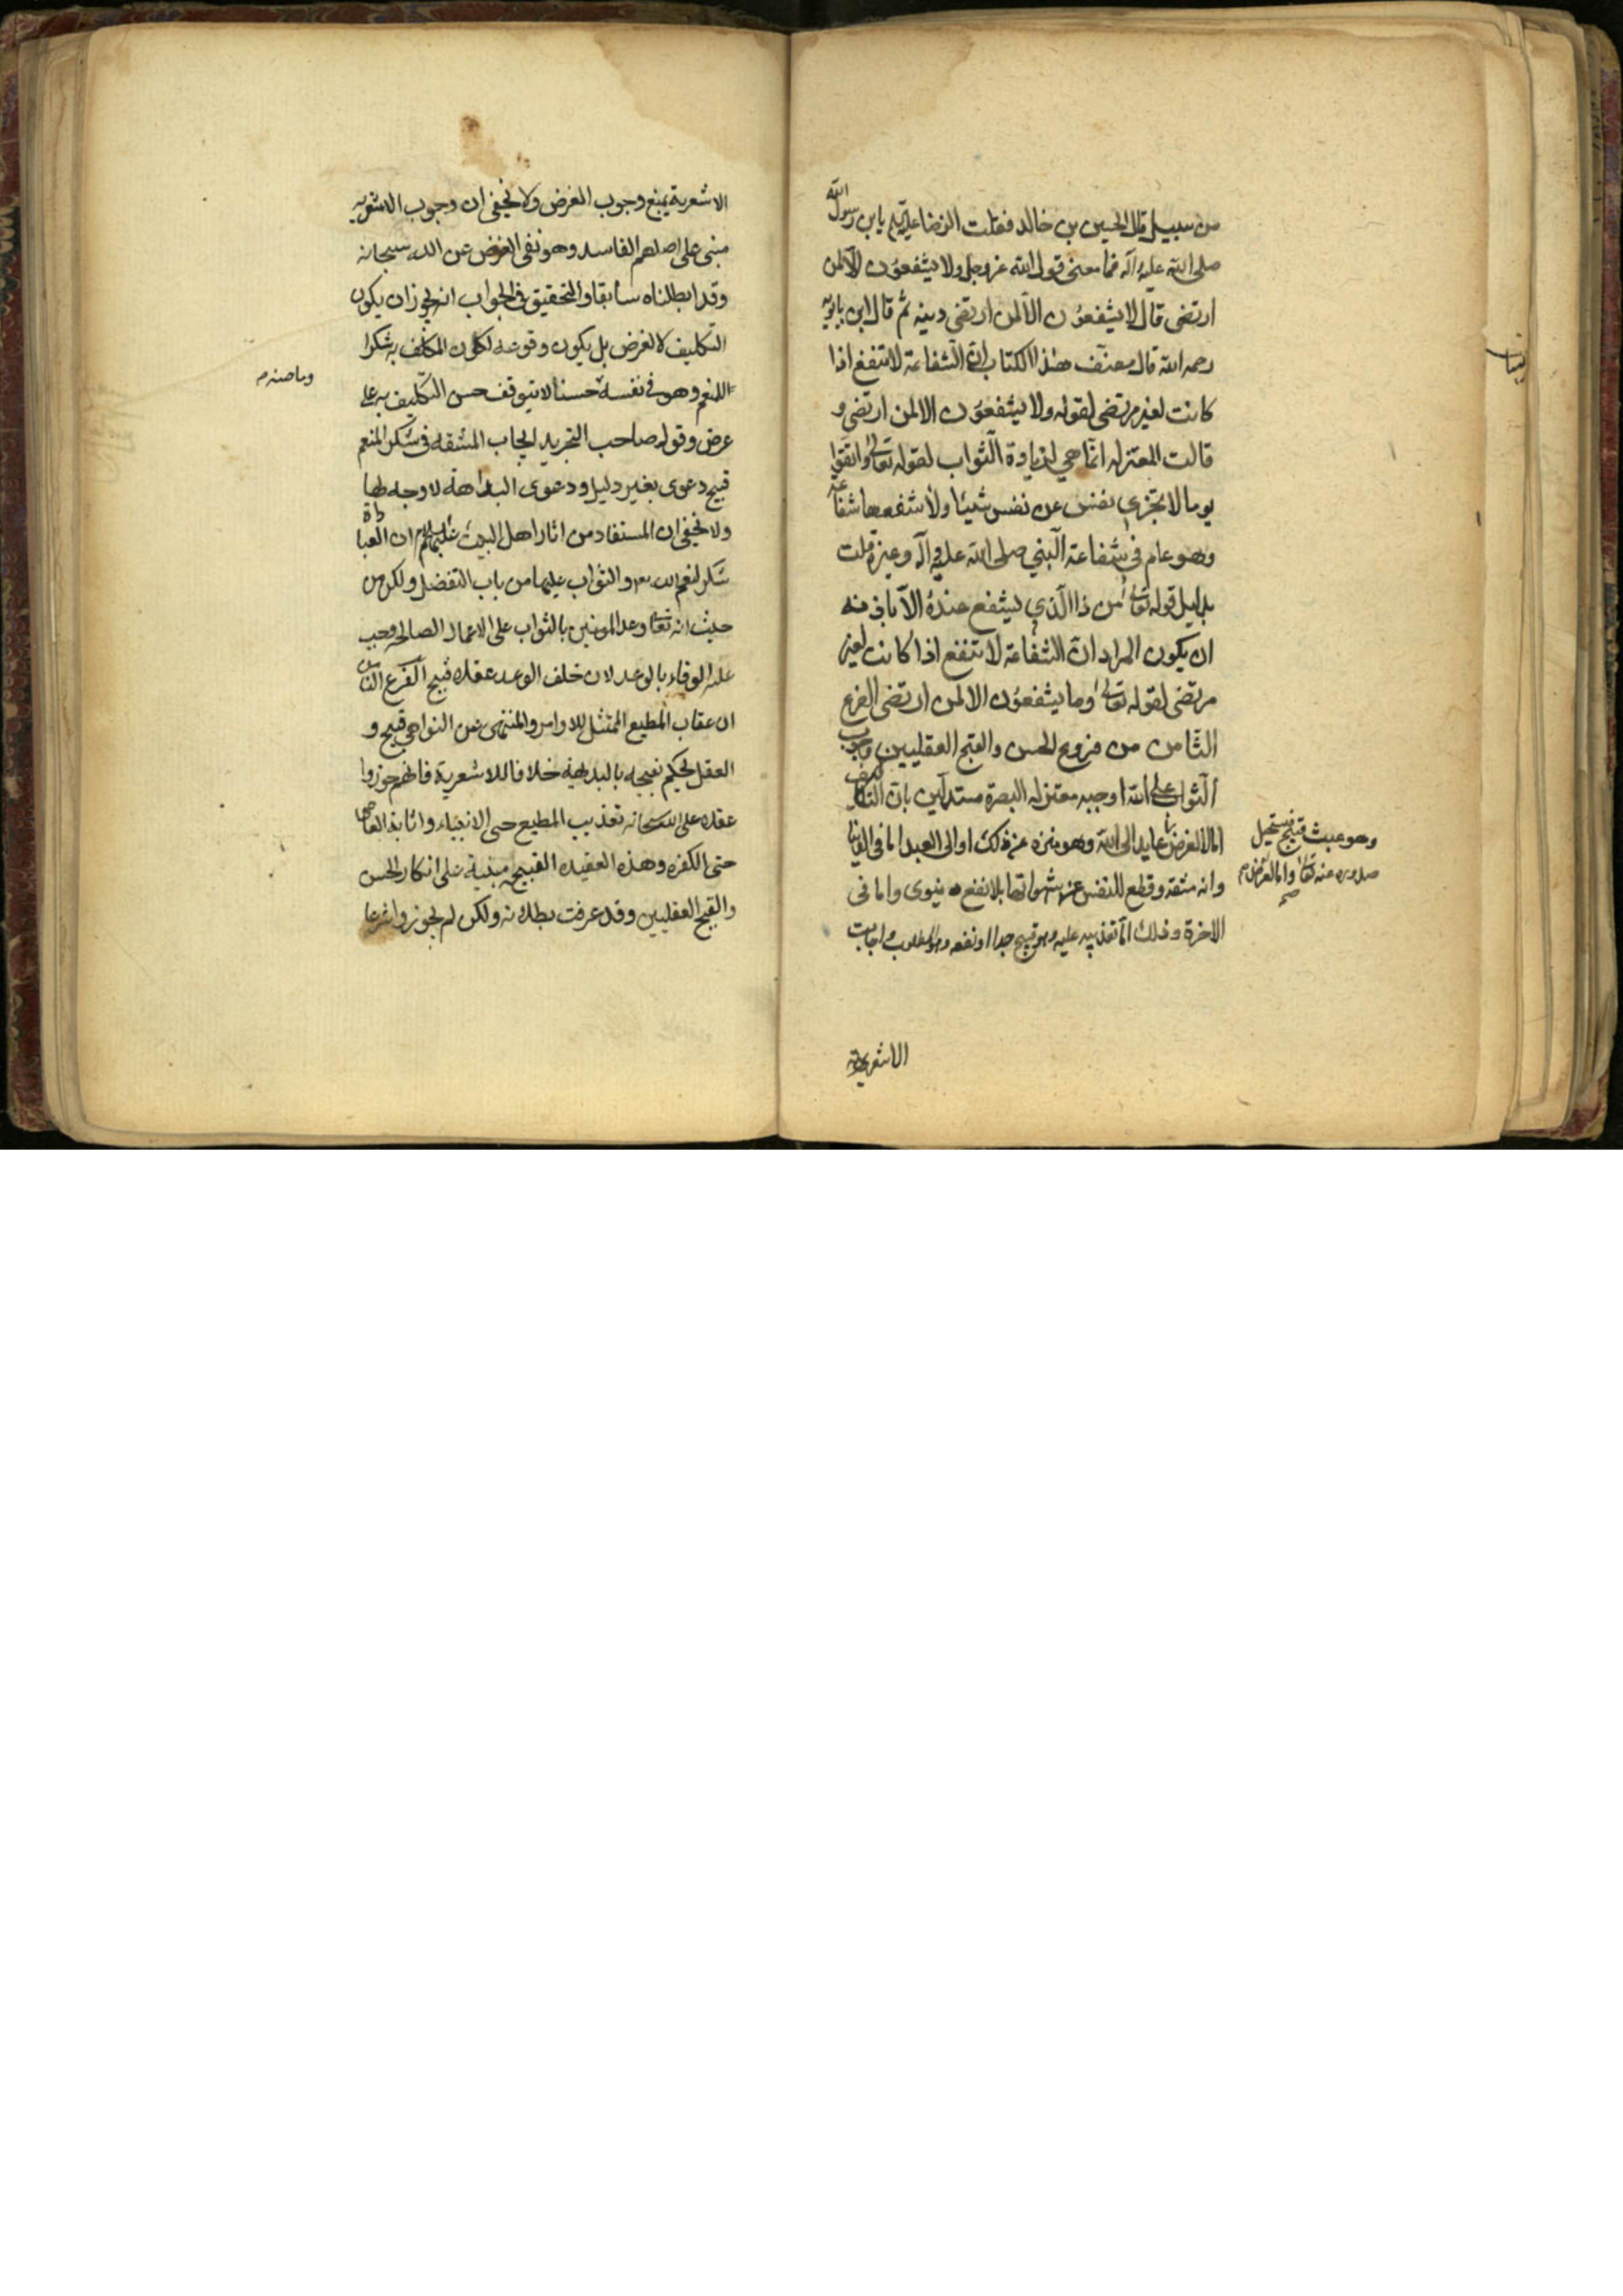 من سبيل قال الحسين بن خالد فقلت للرضا عليه السلم يابن رسول الله
صلى الله عليه وآله فما معنى قول الله عز وجل ولا يشفعون الا لمن
ارتضى قال لا يشفعون الا لمن ارتضى دينه ثم قال ابن بابويه
رحمه الله قال مصنف هذا الكتاب ان الشفاعة لا تنفع اذا
كانت لغير مرتضى لقوله ولا يشفعون الا لمن ارتضى و
قالت المعتزله انما هي لزيادة الثواب لقوله تعالى واتقوا
يوما لا تجزي نفس عن نفس شيئا ولا تنفعها شفاعة
وهو عام في شفاعة النبي صلى الله عليه وآله وغيره قلت
بدليل قوله تعالى من ذا الذي يشفع عنده الا باذنه
ان يكون المراد ان الشفاعة لا تنفع اذا كانت لغير
مرتضى لقوله تعالى وما يشفعون الا لمن ارتضى الفرع
الثامن من فروع الحسن والقبح العقليين وجوب
الثواب على الله اوجبه معتزله البصرة مستدلين بان التكليف
اما لا لغرض عايد الى الله وهو منزه عن ذلك او الى العبد اما في الدنيا
وهو عبث قبيح فيستحيل
صدوره عنه تعالى واما لغرض
صح
وانه مشقه وقطع للنفس عن شهواتها بلا نفع دنيوى واما فى
الاخرة وذلك اما تعذيبه عليه وهو قبيح جدا او نفعه وهو المطلوب واجابت
الاشعرية
الاشعرية بمنع وجوب الغرض ولا يخفى ان وجوب الاشعريه
مبنى على اصلهم الفاسد وهو نفى الغرض عن الله سبحانه
وقد ابطلناه سابقا والتحقيق فى الجواب انه يجوز ان يكون
التكليف لا لغرض بل يكون وقوعه لكون المكلف به شكرا
للنعم وهو فى نفسه حسنا لا يتوقف حسن التكليف به على
غرض وقول صاحب التجريد ايجاب المشقه فى شكر المنعم
قبيح دعوى بغير دليل ودعوى البداهة لا وجه لها
ولا يخفى ان المستفاد من اثار اهل البيت عليهم السلم ان العبادة
شكر لنعم الله والثواب عليها من باب التفضل ولكن من
حيث انه تعالى وعد المومنين بالثواب على الاعمال الصالحه وجب
عليه الوفاء بالوعد لان خلف الوعد عقلا قبيح الفرع التاسع
ان عقاب المطيع الممتثل للاوامر والمنتهى عن النواهي قبيح و
العقل يحكم بقبحه بالبديهة خلافا للاشعرية فانهم جوزوا
عقلا على الله سبحانه تعذيب المطيع حتى الانبياء واثابة العاصى
حتى الكفره وهذه العقيده القبيحه مبنية على انكار الحسن
والقبح العقليين وقد عرفت بطلانه ولكن لم يجوزوا شرعا